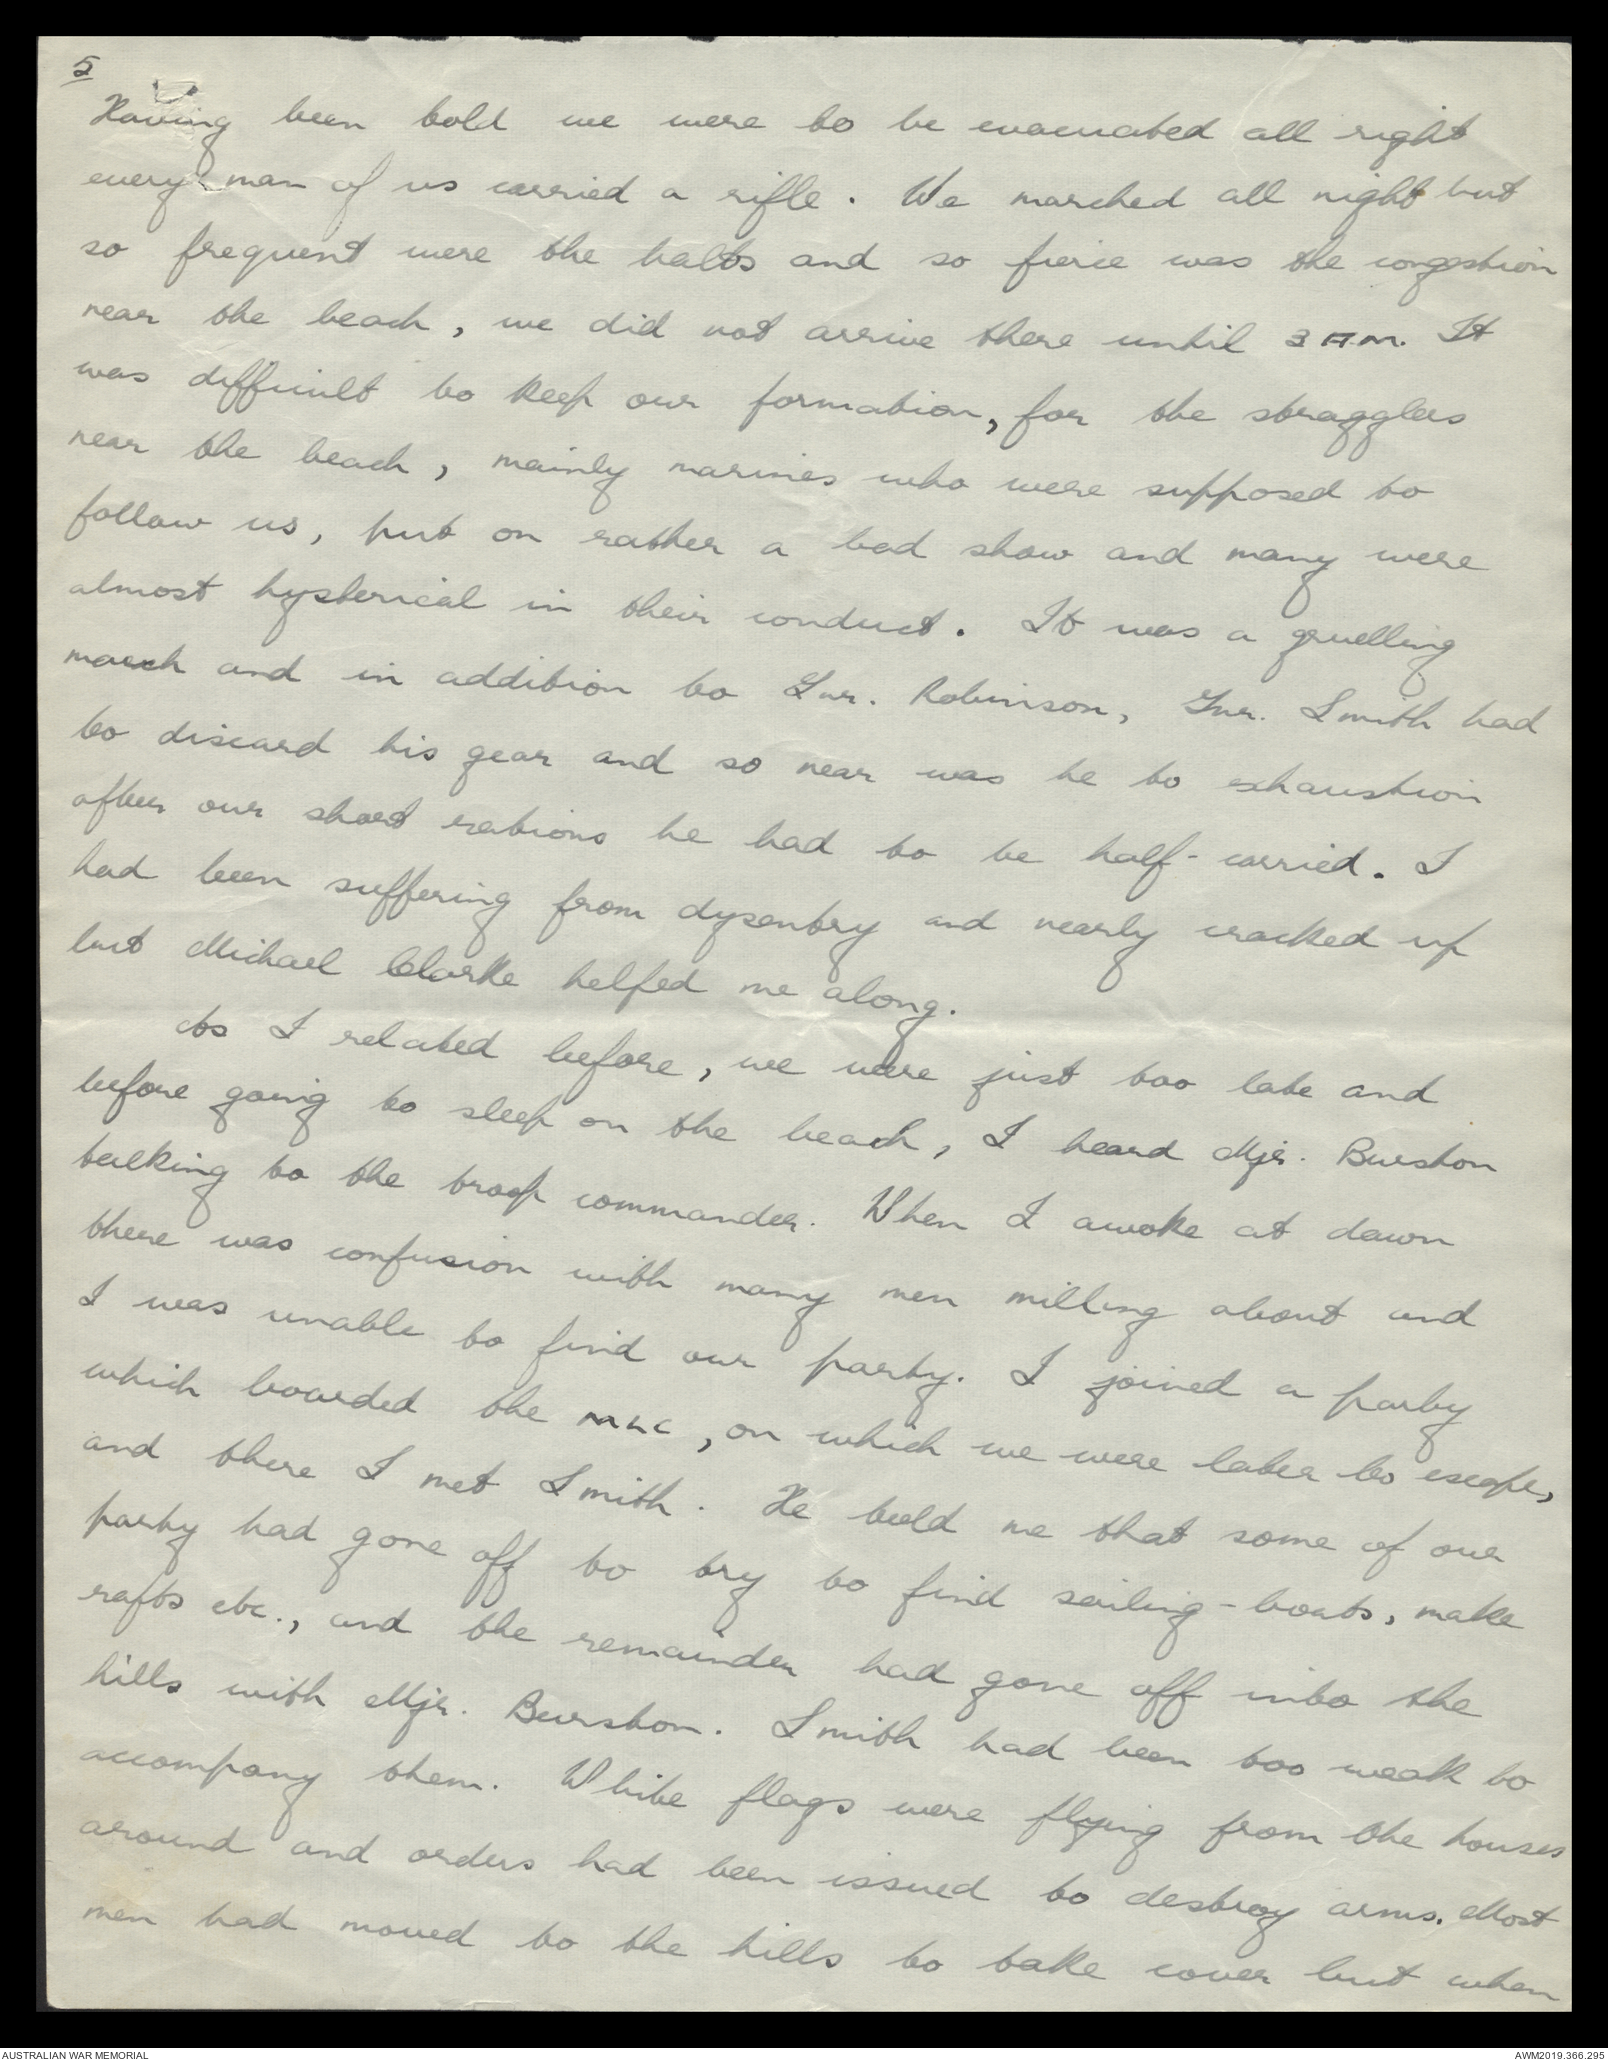 5
Having been told we were to be evacuated all right
every man of us carried a rifle. We marched all night but
so frequent were the halts and so fierce was the congestion
near the beach, we did not arrive there until 3 A.M. It
was difficult to keep our formation, for the stragglers
near the beach, mainly marines who were supposed to
follow us, put on rather a bad show and many were
almost hysterical in their conduct. It was a gruelling
march and in addition to Gnr. Robinson, Gnr. Smith had
to discard his gear and so near was he to exhaustion
after our short rations he had to be half-carried. I
had been suffering from dysentry and nearly cracked up
but Michael Clarke helped me along.
As I related before, we were just too late and
before going to sleep on the beach, I heard Mjr. Burston
talking to the troop commander. When I awoke at dawn
there was confusion with many men milling about and
I was unable to find our party. I joined a party
which boarded the MLC, on which we were later to escape,
and there I met Smith. He told me that some of our
party had gone off to try to find sailing-boats, make
rafts etc., and the remainder had gone off into the
hills with Mjr. Burston. Smith had been too weak to
accompany them. White flags were flying from the houses
around and orders had been issued to destroy arms. Most
men had moved to the hills to take cover but when
AUSTRALIAN WAR MEMORIAL
AWM2019.366.295